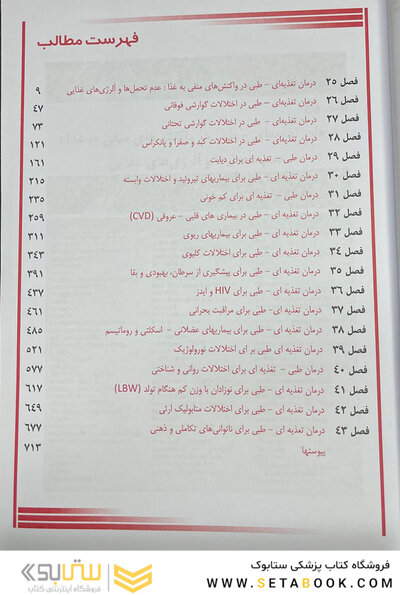 فهرست مطالب
فصل ۲۵ درمان تغذیه‌ای - طبی در واکنش‌های منفی به غذا : عدم تحمل‌ها و آلرژی‌های غذایی ۹
فصل ۲۶ درمان تغذیه‌ای - طبی در اختلالات گوارشی فوقانی ۴۷
فصل ۲۷ درمان تغذیه‌ای - طبی در اختلالات گوارشی تحتانی ۷۳
فصل ۲۸ درمان تغذیه‌ای - طبی در اختلالات کبد و صفرا و پانکراس ۱۲۱
فصل ۲۹ درمان طبی - تغذیه ای برای دیابت ۱۶۱
فصل ۳۰ درمان تغذیه ای - طبی برای بیماریهای تیروئید و اختلالات وابسته ۲۱۵
فصل ۳۱ درمان طبی - تغذیه ای برای کم خونی ۲۳۵
فصل ۳۲ درمان تغذیه ای - طبی در بیماری های قلبی - عروقی (CVD) ۲۵۹
فصل ۳۳ درمان تغذیه ای - طبی برای بیماریهای ریوی ۳۱۱
فصل ۳۴ درمان تغذیه ای - طبی برای اختلالات کلیوی ۳۴۳
فصل ۳۵ درمان تغذیه ای - طبی برای پیشگیری از سرطان، بهبودی و بقا ۳۹۱
فصل ۳۶ درمان تغذیه ای - طبی برای HIV و ایدز ۴۳۷
فصل ۳۷ درمان تغذیه ای - طبی برای مراقبت بحرانی ۴۶۱
فصل ۳۸ درمان تغذیه ای - طبی برای بیماریهای عضلانی - اسکلتی و روماتیسم ۴۸۵
فصل ۳۹ درمان تغذیه ای - طبی بر ای اختلالات نورولوژیک ۵۲۱
فصل ۴۰ درمان طبی - تغذیه ای برای اختلالات روانی و شناختی ۵۷۷
فصل ۴۱ درمان تغذیه ای - طبی برای نوزادان با وزن کم هنگام تولد (LBW) ۶۱۷
فصل ۴۲ درمان تغذیه ای - طبی برای اختلالات متابولیک ارثی ۶۴۹
فصل ۴۳ درمان تغذیه ای - طبی برای ناتوانی‌های تکاملی و ذهنی ۶۷۷
پیوستها ۷۱۳
فروشگاه کتاب پزشکی ستابوک
WWW.SETABOOK.COM
ستابوک
فروشگاه اینترنتی کتاب